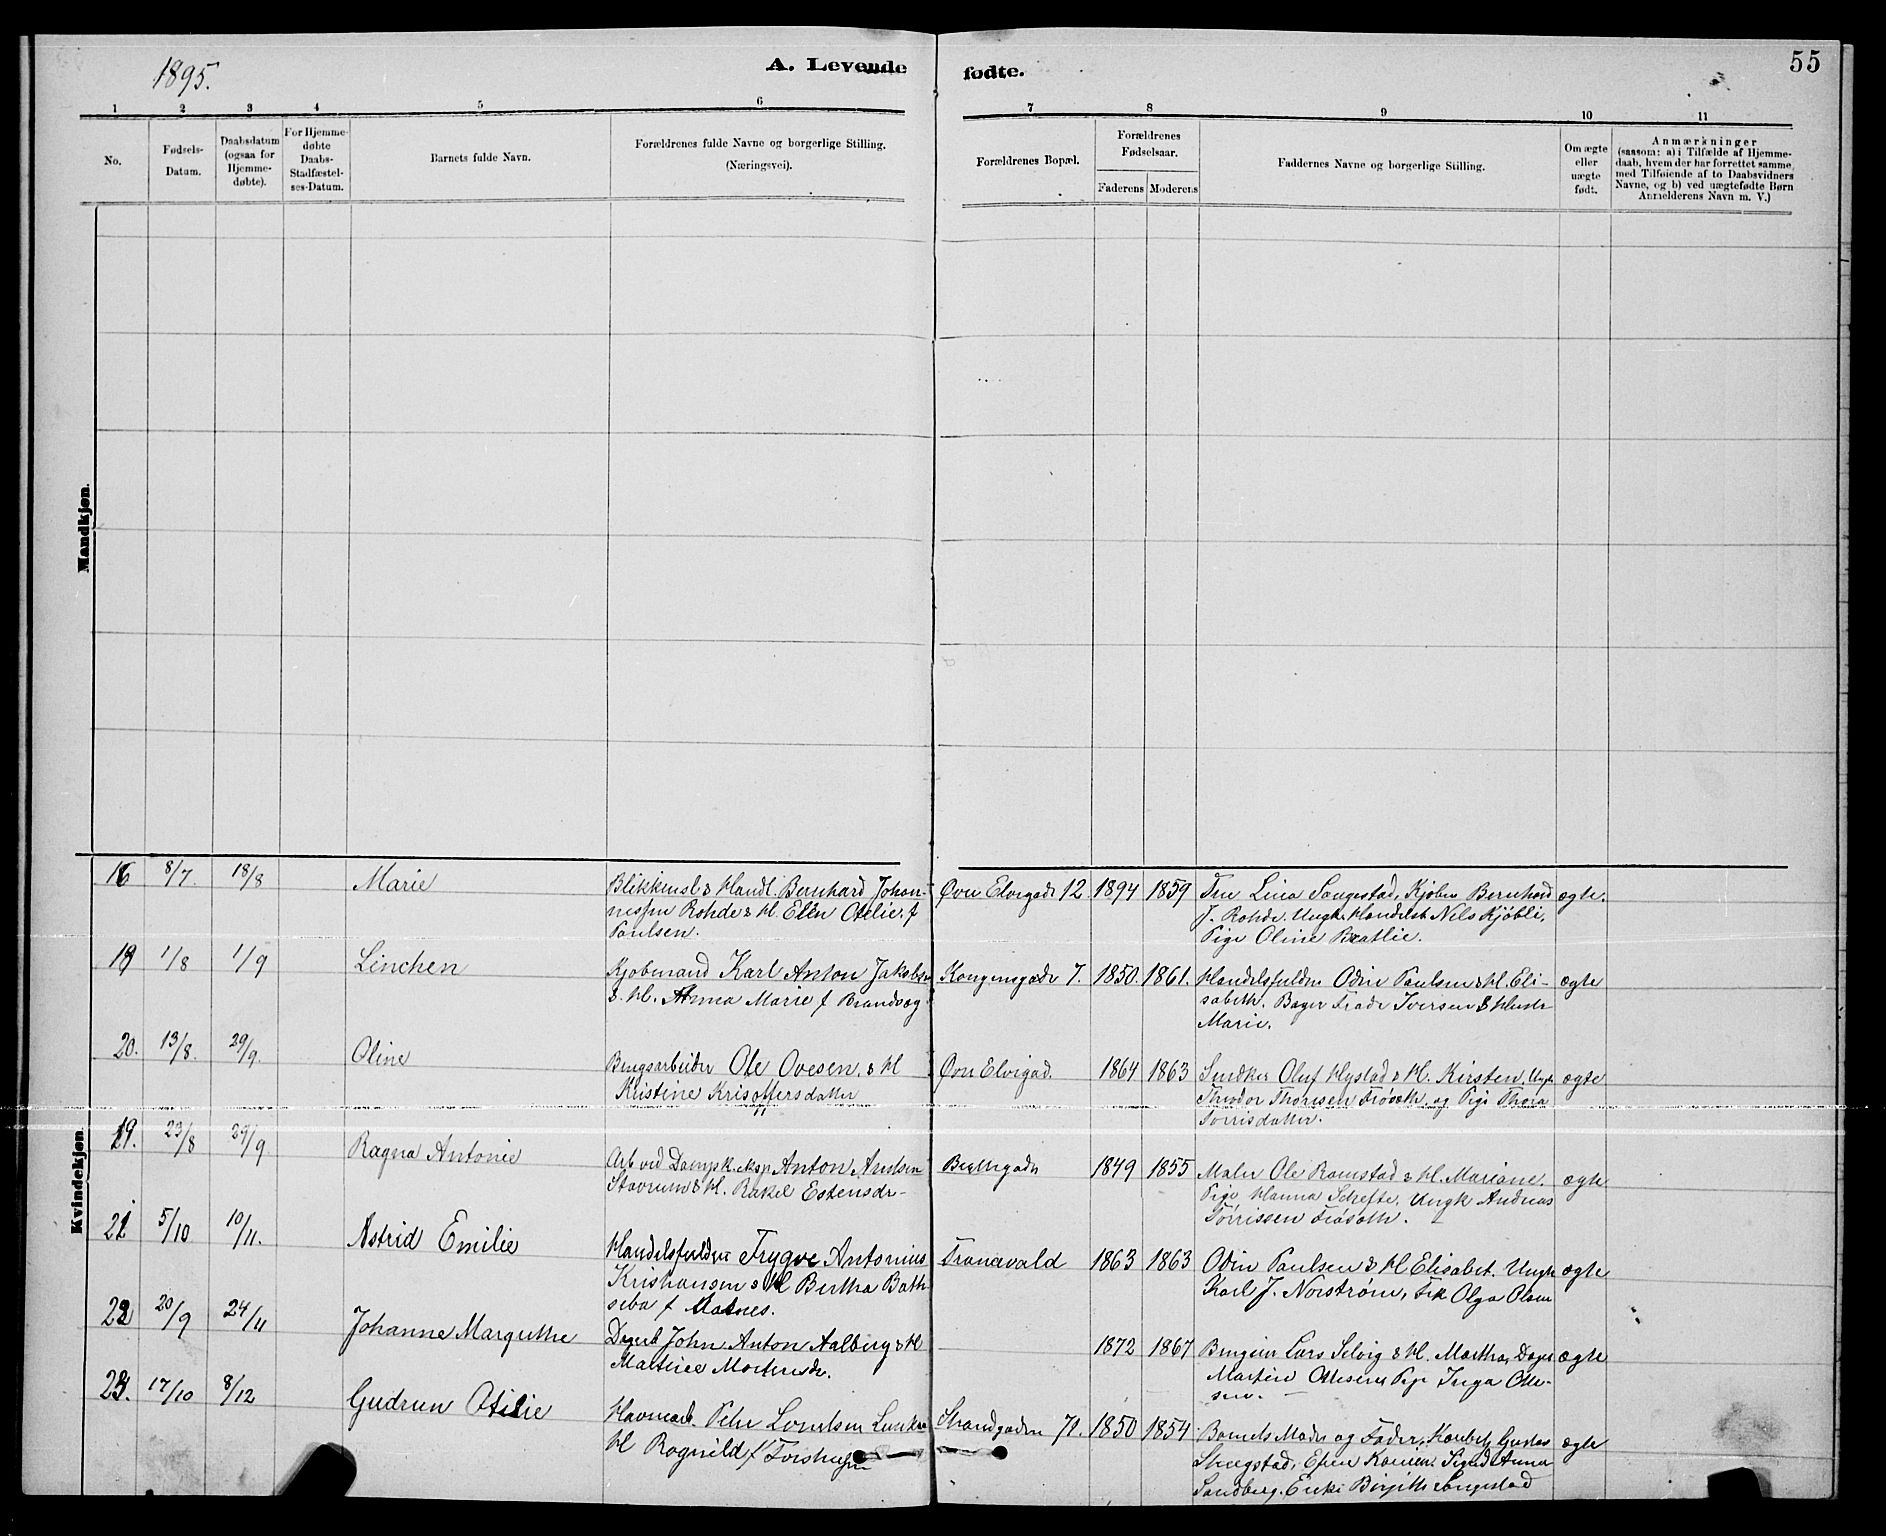 1895.
A. Levende fødte.
55
1 2 3 4 5 6 7 8 9 10 11
No.
Fødsels-
Datum.
Daabsdatum
(ogsaa for
Hjemme-
døbte).
For Hjemme-
døbte
Daabs-
Stadfæstel-
ses-Datum.
Barnets fulde Navn.
Forældrenes fulde Navne og borgerlige Stilling.
(Næringsvei).
Forældrenes Bopæl.
Forældrenes
Fødselsaar.
Faderens Moderens
Faddernes Navne og borgerlige Stilling.
Om ægte
eller
uægte
født.
Anmærkninger
(saasom: a) i Tilfælde af Hjemme-
daab, hvem der har forrettet samme,
med Tilføiende af to Daabsvidners
Navne, og b) ved uægtefødte Børn
Anmelderens Navn m. V.)
Mandkjøn.
Kvindekjøn.
16 8/7. 18/8 Marie
Blikkensl. & Handl. Bernhard Johan-
nessen Rohde & H. Elen Otelie f
Paulsen.
Øvre Elvegade 12. 1894 1859
Fru Lina Sougestad, Kjøbm Bernhard
J. Rohde. Ungk. Handelsb Nils Kjöbli,
Pige Oline Bratlie.
ægte.
19 1/8 1/9 Linchen
Kjøbmand Karl Anton Jakobsen
& H. Anna Marie f Brandvæg.
Kongensgade 7. 1850. 1861.
Handelsfuldm Odin Paulsen & H. Eli-
sabeth. Bager Iversen & Hustr
Marie.
ægte
20. 13/8. 29/9. Oline
Brugsarbeider Ole Ovesen. & H
Kristine Krisoffersdatter
Øvre Elvegad. 1864 1863
Snedker Oluf Hystad & H. Kirsten, Ungk
Theodor Thoresen og Pige Thora
Torrisdatter.
ægte
19. 23/8 29/9 Ragna Antonie
Arb ved Dampsk.eksp Anton Andersen
Stavrum & H. Rakel Estensdr-
1849 1855
Maler Ole Ramstad & H. Mariane.
Pige Hanna Schefte, Ungk Andreas
Tørrissen
ægte
21 5/10 10/11. Astrid Emilie
Handelsfuldm Trygve Antonius
Kristiansen & H Bertha Bath-
seba f Matnes.
Tranavald 1863 1863
Odin Paulsen & H Elisabet. Ungk
Karl J. Norstrøm, Frk Olga Olsen
ægte
22 20/9 24/11 Johanne Margrethe
Dagarb John Anton Aalberg & H
Martine Mortensdr.
1872 1867
Lars Selvig & H. Martha, Dagar
Martin Ottesen Pige Inga Otte-
sen.
ægte
23. 17/10 8/12 Gudrun Otilie
Havnearb. Peter Lorntsen
H Rognild f Forshagen
Strandgaden 71. 1850 1854
Barnets Moder og Fader, Gustav
Skugstad, Anna
Sandberg. Enke Birgitte Songestad
ægte